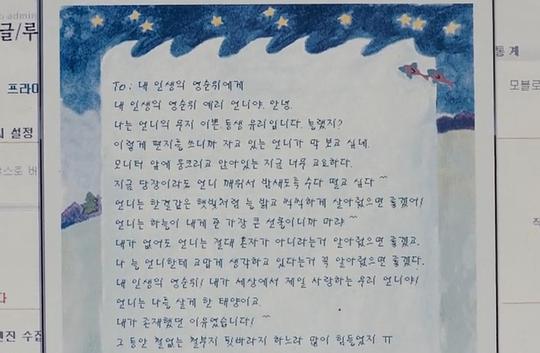 admin
글/루
프라이
설정
통계
모블로
To: 내 인생의 영순위에게
내 인생의 영순위 예리 언니야. 안녕.
나는 언니의 무지 이쁜 동생 유리입니다. 놀랬지?
이렇게 편지를 쓰니까 자고 있는 언니가 막 보고 싶네.
모니터 앞에 웅크리고 앉아있는 지금 너무 고요하다.
지금 당장이라도 언니 깨워서 밤새도록 수다 떨고 싶다 ^^
언니는 한결같은 햇빛처럼 늘 밝고 씩씩하게 살아줬으면 좋겠어!
언니는 하늘이 내게 준 가장 큰 선물이니까 말야 ^^
내가 없어도 언니는 절대 혼자가 아니라는거 알아줬으면 좋겠고.
나 늘 언니한테 고맙게 생각하고 있다는거 꼭 알아줬으면 좋겠다.
내 인생의 영순위! 내가 세상에서 제일 사랑하는 우리 언니야!
언니는 나를 살게 한 태양이고.
내가 존재했던 이유였습니다! ^^
그 동안 철없는 철부지 뒷바라지 하느라 많이 힘들었지 ㅠ